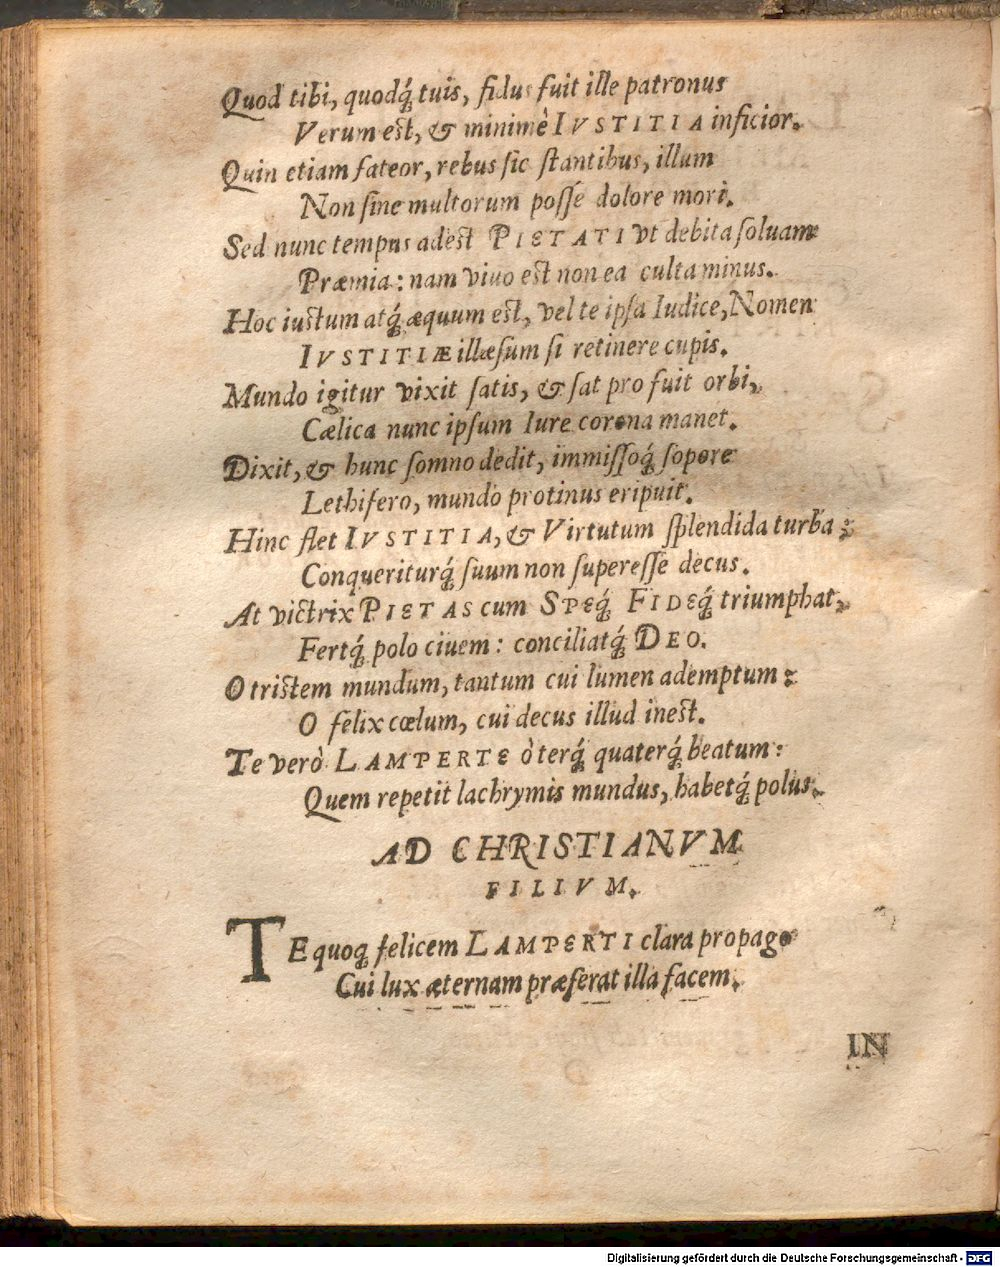 Quod tibi, quodq́; tuis, fidus fuit ille patronus
Verum est, & minimè IVSTITIA inficior.
Quin etiam fateor, rebus sic stantibus, illum
Non sine multorum posse dolore mori.
Sed nunc tempus adest PIETATI vt debita soluam
Præmia: nam viuo est non ea culta minus.
Hoc iustum atq́; æquum est, vel te ipsa Iudice, Nomen
IVSTITIÆ illæsum si retinere cupis.
Mundo igitur vixit satis, & sat profuit orbi,
Cælica nunc ipsum Iure corona manet.
Dixit, & hunc somno dedit, immissoq́; sopore
Lethifero, mundo protinus eripuit.
Hinc flet IVSTITIA, & Virtutum splendida turba:
Conqueriturq́; suum non superesse decus.
At victrix PIETAS cum SPEq́; FIDEq́; triumphat,
Fertq́; polo ciuem: conciliatq́; DEO.
O tristem mundum, tantum cui lumen ademptum:
O felix cœlum, cui decus illud inest.
Te verò LAMPERTE ò terq́; quaterq́; beatum:
Quem repetit lachrymis mundus, habetq́; polus.
AD CHRISTIANVM
FILIVM.
TE quoq; felicem LAMPERTI clara propago
Cui lux æternam præferat illa facem.
IN
Digitalisierung gefördert durch die Deutsche Forschungsgemeinschaft - DFG